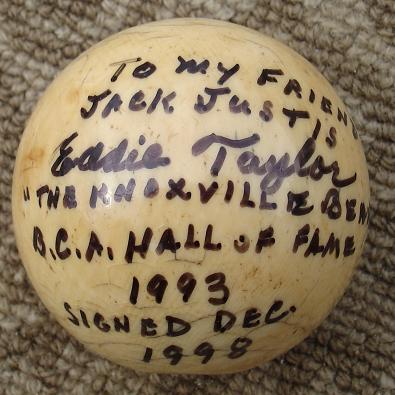 TO MY FRIEND
JACK JUSTIS
Eddie Taylor
"THE KNOXVILLE BEA
B.C.A. HALL OF FAME
1993
SIGNED DEC.
1998